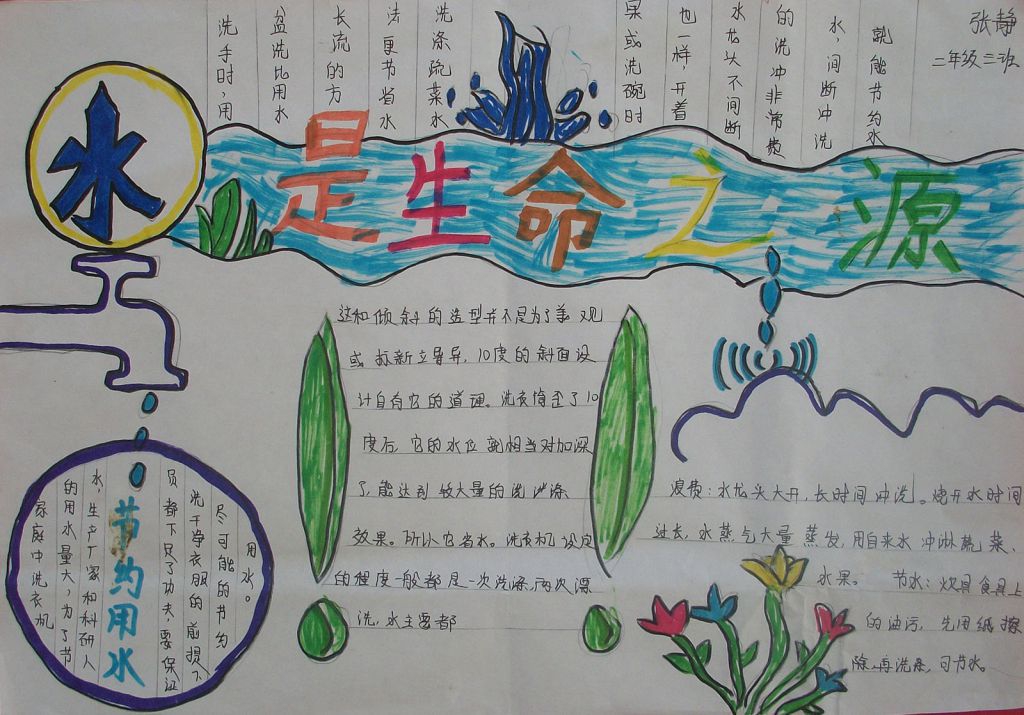 水是生命之源
张静
二年级三班
洗手时,用
盆洗比用水
长流的方
法更节省水
洗涤蔬菜水
果或洗碗时
也一样,开着
水龙头不间断
的洗冲非常费
水,间断冲洗
就能节约水
家庭中洗衣机
的用水量大,为了节
水,生产厂家和科研人
节约用水
员都下足了功夫,要保证
洗干净衣服的前提下
尽可能的节约
用水。
这和倾斜的造型并不是为了美观
或标新立异,10度的斜面设
计自有它的道理。洗衣筒歪了10
度后,它的水位就相当对加深
了,能达到较大量的洗涤
效果。所以它省水。洗衣机设定
的程度一般都是一次洗涤,两次漂
洗,水主要都
浪费:水龙头大开,长时间冲洗。烧开水时间
过长,水蒸气大量蒸发,用自来水冲淋蔬菜、
水果。 节水:炊具食具上
的油污,先用纸擦
除,再洗涤,可节水。